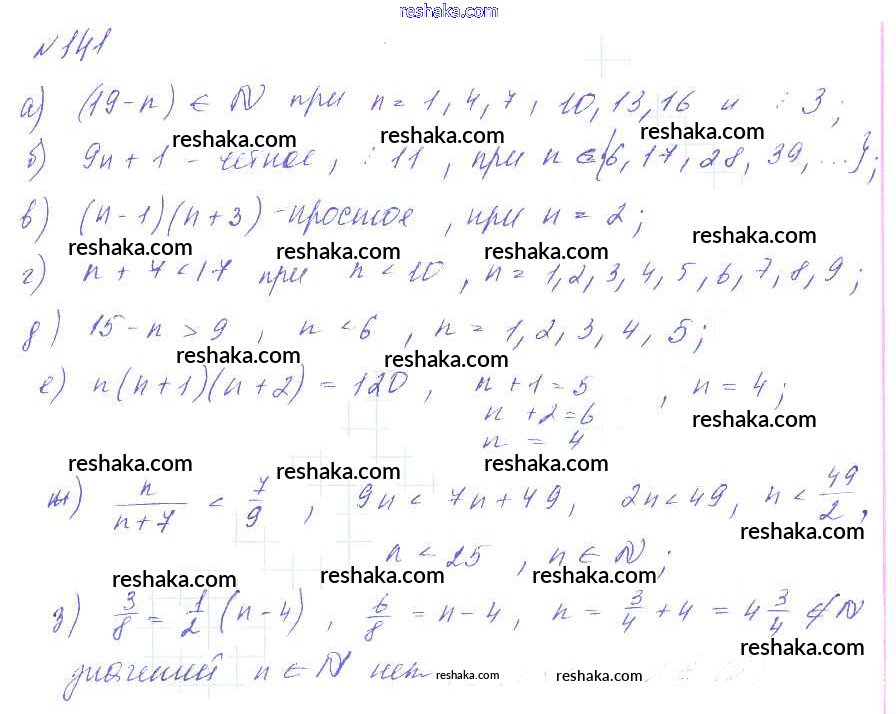 reshaka.com
№141
а) (19-n) ∈ N при n = 1, 4, 7, 10, 13, 16 и ⋮ 3;
reshaka.com reshaka.com reshaka.com
б) 9n + 1 - четное, ⋮ 11, при n ∈ {6, 17, 28, 39, ...};
в) (n-1)(n+3) - простое, при n = 2;
reshaka.com reshaka.com reshaka.com reshaka.com
г) n + 7 < 17 при n < 10, n = 1, 2, 3, 4, 5, 6, 7, 8, 9;
д) 15 - n > 9, n < 6, n = 1, 2, 3, 4, 5;
reshaka.com reshaka.com
е) n(n+1)(n+2) = 120, n + 1 = 5, n = 4;
n + 2 = 6
n = 4
reshaka.com
reshaka.com reshaka.com reshaka.com
ж) n/(n+7) < 7/9, 9n < 7n + 49, 2n < 49, n < 49/2,
reshaka.com
n < 25, n ∈ N;
reshaka.com reshaka.com reshaka.com
з) 3/8 = 1/2 (n-4), 6/8 = n - 4, n = 3/4 + 4 = 4 3/4 ∉ N
reshaka.com
значений n ∈ N нет
reshaka.com reshaka.com reshaka.com